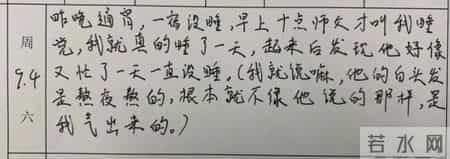 周
9.4
六
昨晚通宵,一宿没睡,早上十点师父才叫我睡
觉,我就真的睡了一天,起来后发现他好像
又忙了一天一直没睡。(我就说嘛,他的白头发
是熬夜熬的,根本就不像他说的那样,是
我气出来的。)
若水网